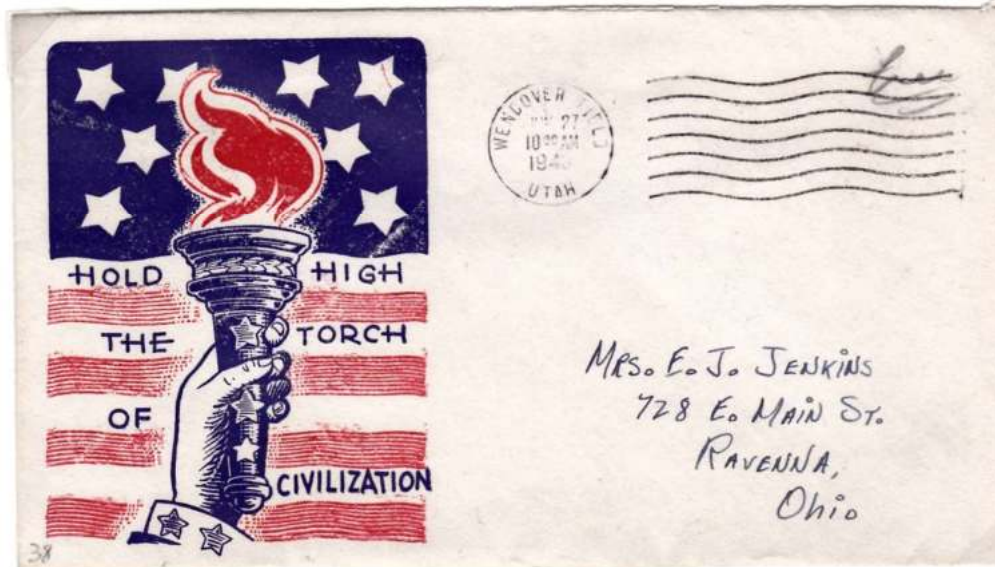 HOLD HIGH
THE TORCH
OF
CIVILIZATION
WENDOVER FIELD
27
10 00 AM
UTAH
MRS. E. J. JENKINS
728 E. MAIN ST.
RAVENNA,
OHIO
38